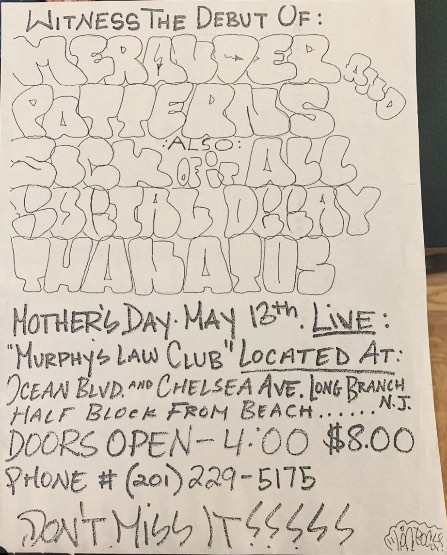 WITNESS THE DEBUT OF:
MERAUDER AND
PATTERNS
:ALSO:
SICK OF IT ALL
SOCIAL DECAY
THANATOS
MOTHER'S DAY. MAY 13th. LIVE:
"MURPHY'S LAW CLUB" LOCATED AT:
OCEAN BLVD. AND CHELSEA AVE. LONG BRANCH
HALF BLOCK FROM BEACH...... N.J.
DOORS OPEN - 4:00 $8.00
PHONE # (201) 229-5175
DON'T MISS IT!!!!!